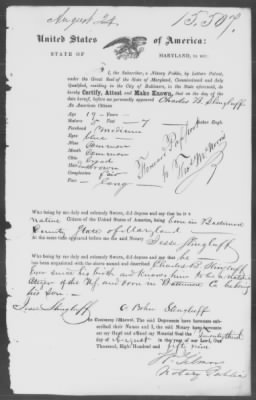 August 24. 15.507.
United States of America:
STATE OF MARYLAND, to wit:
I, the Subscriber, a Notary Public, by Letters Patent,
under the Great Seal of the State of Maryland, Commissioned and duly
Qualified, residing in the City of Baltimore, in the State aforesaid, do
hereby Certify, Attest and Make Known, that on the day of the
date hereof, before me personally appeared Charles B. Slingluff
An American Citizen
Age 19 Years
Stature 5 Feet 7 Inches Engh.
Forehead medium
Eyes blue
Nose Common
Mouth Common
Chin
Hair brown
Complexion Fair
Face Long
Forward Passport
to
Who being by me duly and solemnly Sworn, did depose and say that he is a
native Citizen of the United States of America, being born in Baltimore
County State of Maryland
At the same time appeared before me the said Notary Jesse Slingluff
Who being by me duly and solemnly Sworn, did depose and say, that he
been acquainted with the above named and described Charles B. Slingluff
ever since his birth and knows him to be a native
Citizen of the US and born in Baltimore Co he being
his Son
Jesse Slingluff C. Bohn Slingluff
In Testimony Whereof, The said Deponents have hereunto subscribed
their Names and I, the said Notary have hereunto
set my Hand and affixed my Notarial Seal the twenty third
day of August in the year of our Lord, One
Thousand, Eight Hundred and fifty nine
Notary Public